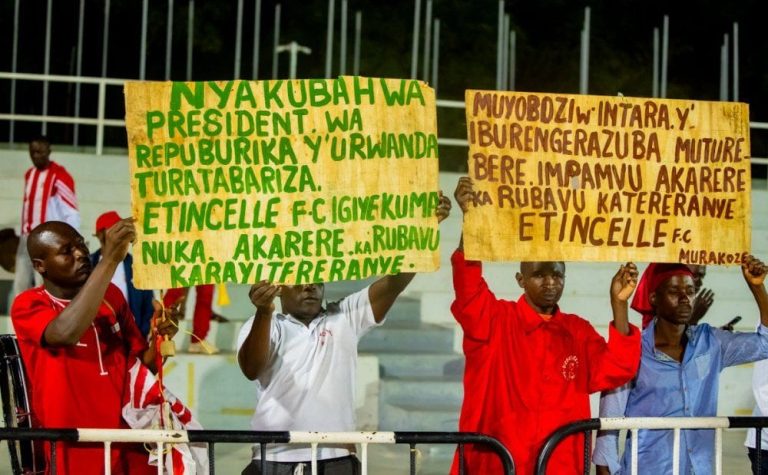 NYAKUBAHWA
PRESIDENT. WA
REPUBURIKA Y'URWANDA
TURATABARIZA.
ETINCELLE F.C IGIYE KUMA
NUKA. AKARERE .KA RUBAVU
KARAYITERERANYE.
MUYOBOZI W' INTARA. Y'
IBURENGERAZUBA MUTURE-
BERE. IMPAMVU AKARERE
KA RUBAVU KATERERANYE
ETINCELLE F.C
MURAKOZE